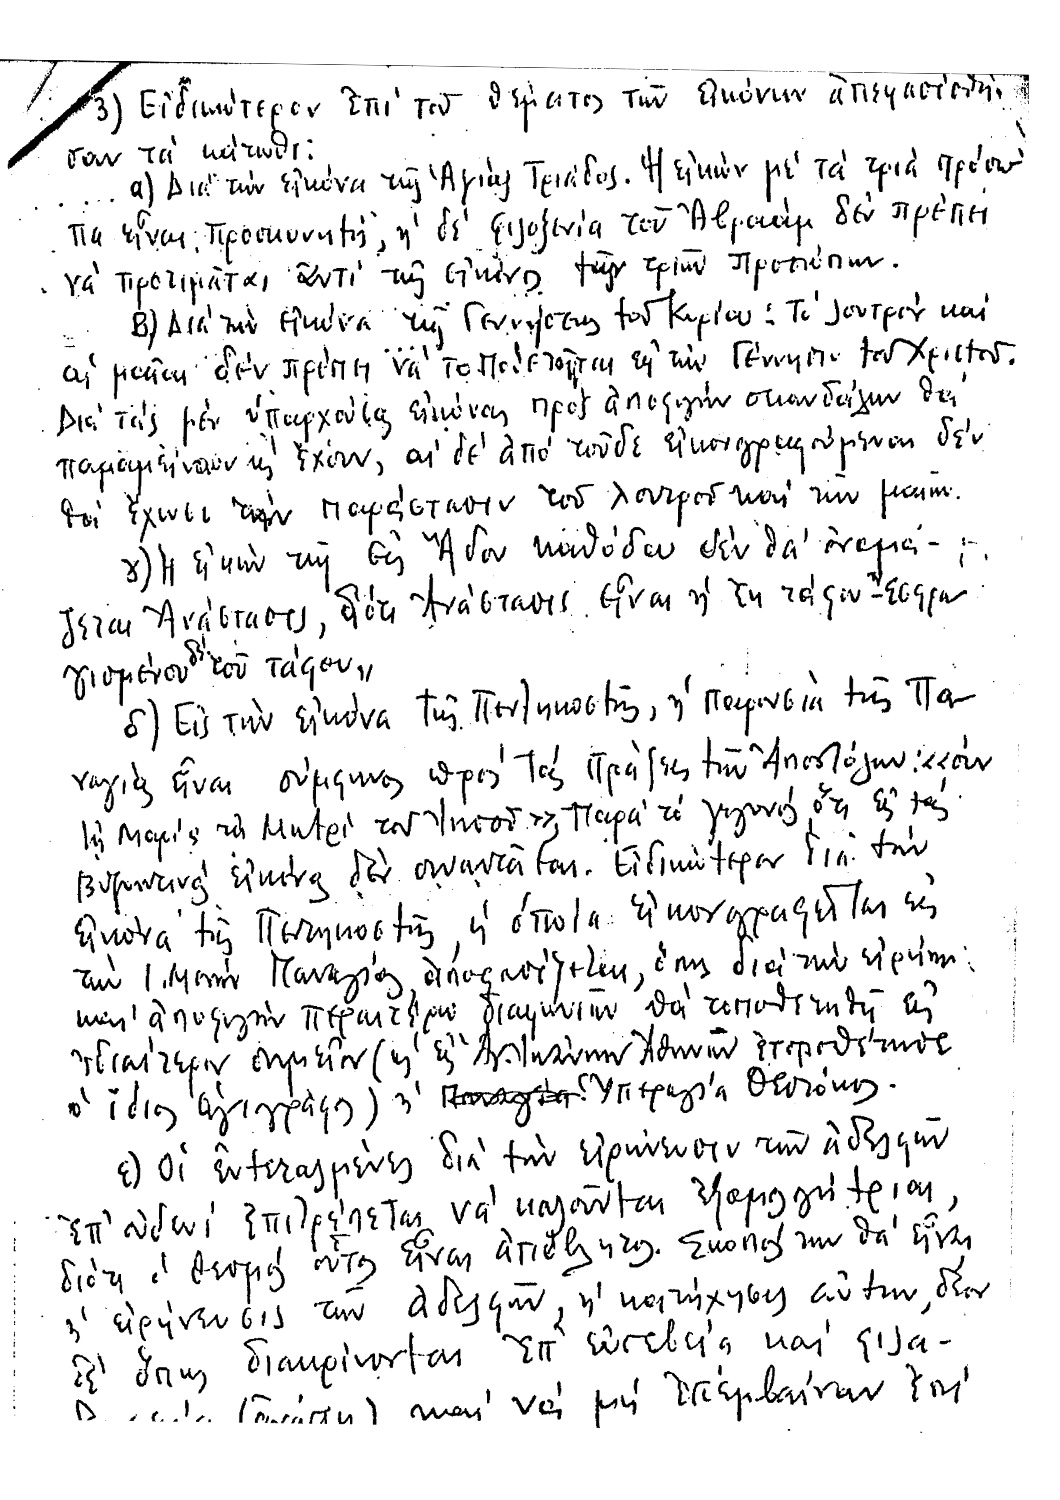 3) Εἰδικώτερον ἐπί τοῦ θέματος τῶν εἰκόνων ἀπεφασίσθη-
σαν τά κάτωθι:
α) Διά τήν εἰκόνα τῆς Ἁγίας Τριάδος. Ἡ εἰκών μέ τά τρία πρόσω-
πα εἶναι προσκυνητή, ἡ δέ φιλοξενία τοῦ Ἀβραάμ δέν πρέπει
νά προτιμᾶται ἀντί τῆς εἰκόνος τῶν τριῶν προσώπων.
β) Διά τήν εἰκόνα τῆς Γεννήσεως τοῦ Κυρίου: Τό λουτρόν καί
αἱ μαῖαι δέν πρέπει νά τοποθετοῦνται εἰς τήν Γέννησιν τοῦ Χριστοῦ.
Διά τάς μέν ὑπαρχούσας εἰκόνας πρός ἀποφυγήν σκανδάλων θά
παραμείνουν ὡς ἔχουν, αἱ δέ ἀπό τοῦδε εἰκονογραφούμεναι δέν
θά ἔχωσι τήν παράστασιν τοῦ λουτροῦ καί τῶν μαιῶν.
γ) Ἡ εἰκών τῆς εἰς Ἅδου καθόδου δέν θά ὀνομά-
ζεται Ἀνάστασις, διότι Ἀνάστασις εἶναι ἡ ἐκ τάφου - Ἐσφρα
γισμένου δέ τοῦ τάφου "
δ) Εἰς τήν εἰκόνα τῆς Πεντηκοστῆς, ἡ παρουσία τῆς Πα
ναγίας εἶναι σύμφωνος πρός τάς Πράξεις τῶν Ἀποστόλων: «σύν
τῇ Μαρίᾳ τῇ Μητρί τοῦ Ἰησοῦ», Παρά τό γεγονός ὅτι εἰς τάς
Βυζαντινάς εἰκόνας δέν συναντᾶται. Εἰδικώτερον διά τήν
εἰκόνα τῆς Πεντηκοστῆς, ἡ ὁποία εἰκονογραφεῖται εἰς
τήν Ι. Μονήν Παναγίας, ἀποφασίζεται, ὅπως διά τήν εἰρήνην
καί ἀποφυγήν περαιτέρω διαφωνιῶν θά τοποθετηθῆ εἰς
ἰδιαίτερον σημεῖον (ὡς εἰς Ἁγ. Ἰωάννην Ἀθηνῶν ἐτοποθέτησε
ὁ ἴδιος ἁγιογράφος) ἡ Ὑπεραγία Θεοτόκος.
ε) Οἱ ἐντεταλμένες διά τήν εἰρήνευσιν τῶν ἀδελφῶν
ἐπ' οὐδενί ἐπιτρέπεται νά καλοῦνται ἐξομολογήτριαι,
διότι ὁ θεσμός οὗτος εἶναι ἀπόβλητος. Σκοπός των θά εἶναι
ἡ εἰρήνευσις τῶν ἀδελφῶν, ἡ κατήχησις αὐτων, δέον
δέ ὅπως διακρίνονται ἐπ' εὐσεβείᾳ καί φιλα-
(ἀγάπη) καί νά μή ἐπεμβαίνουν ἐπί